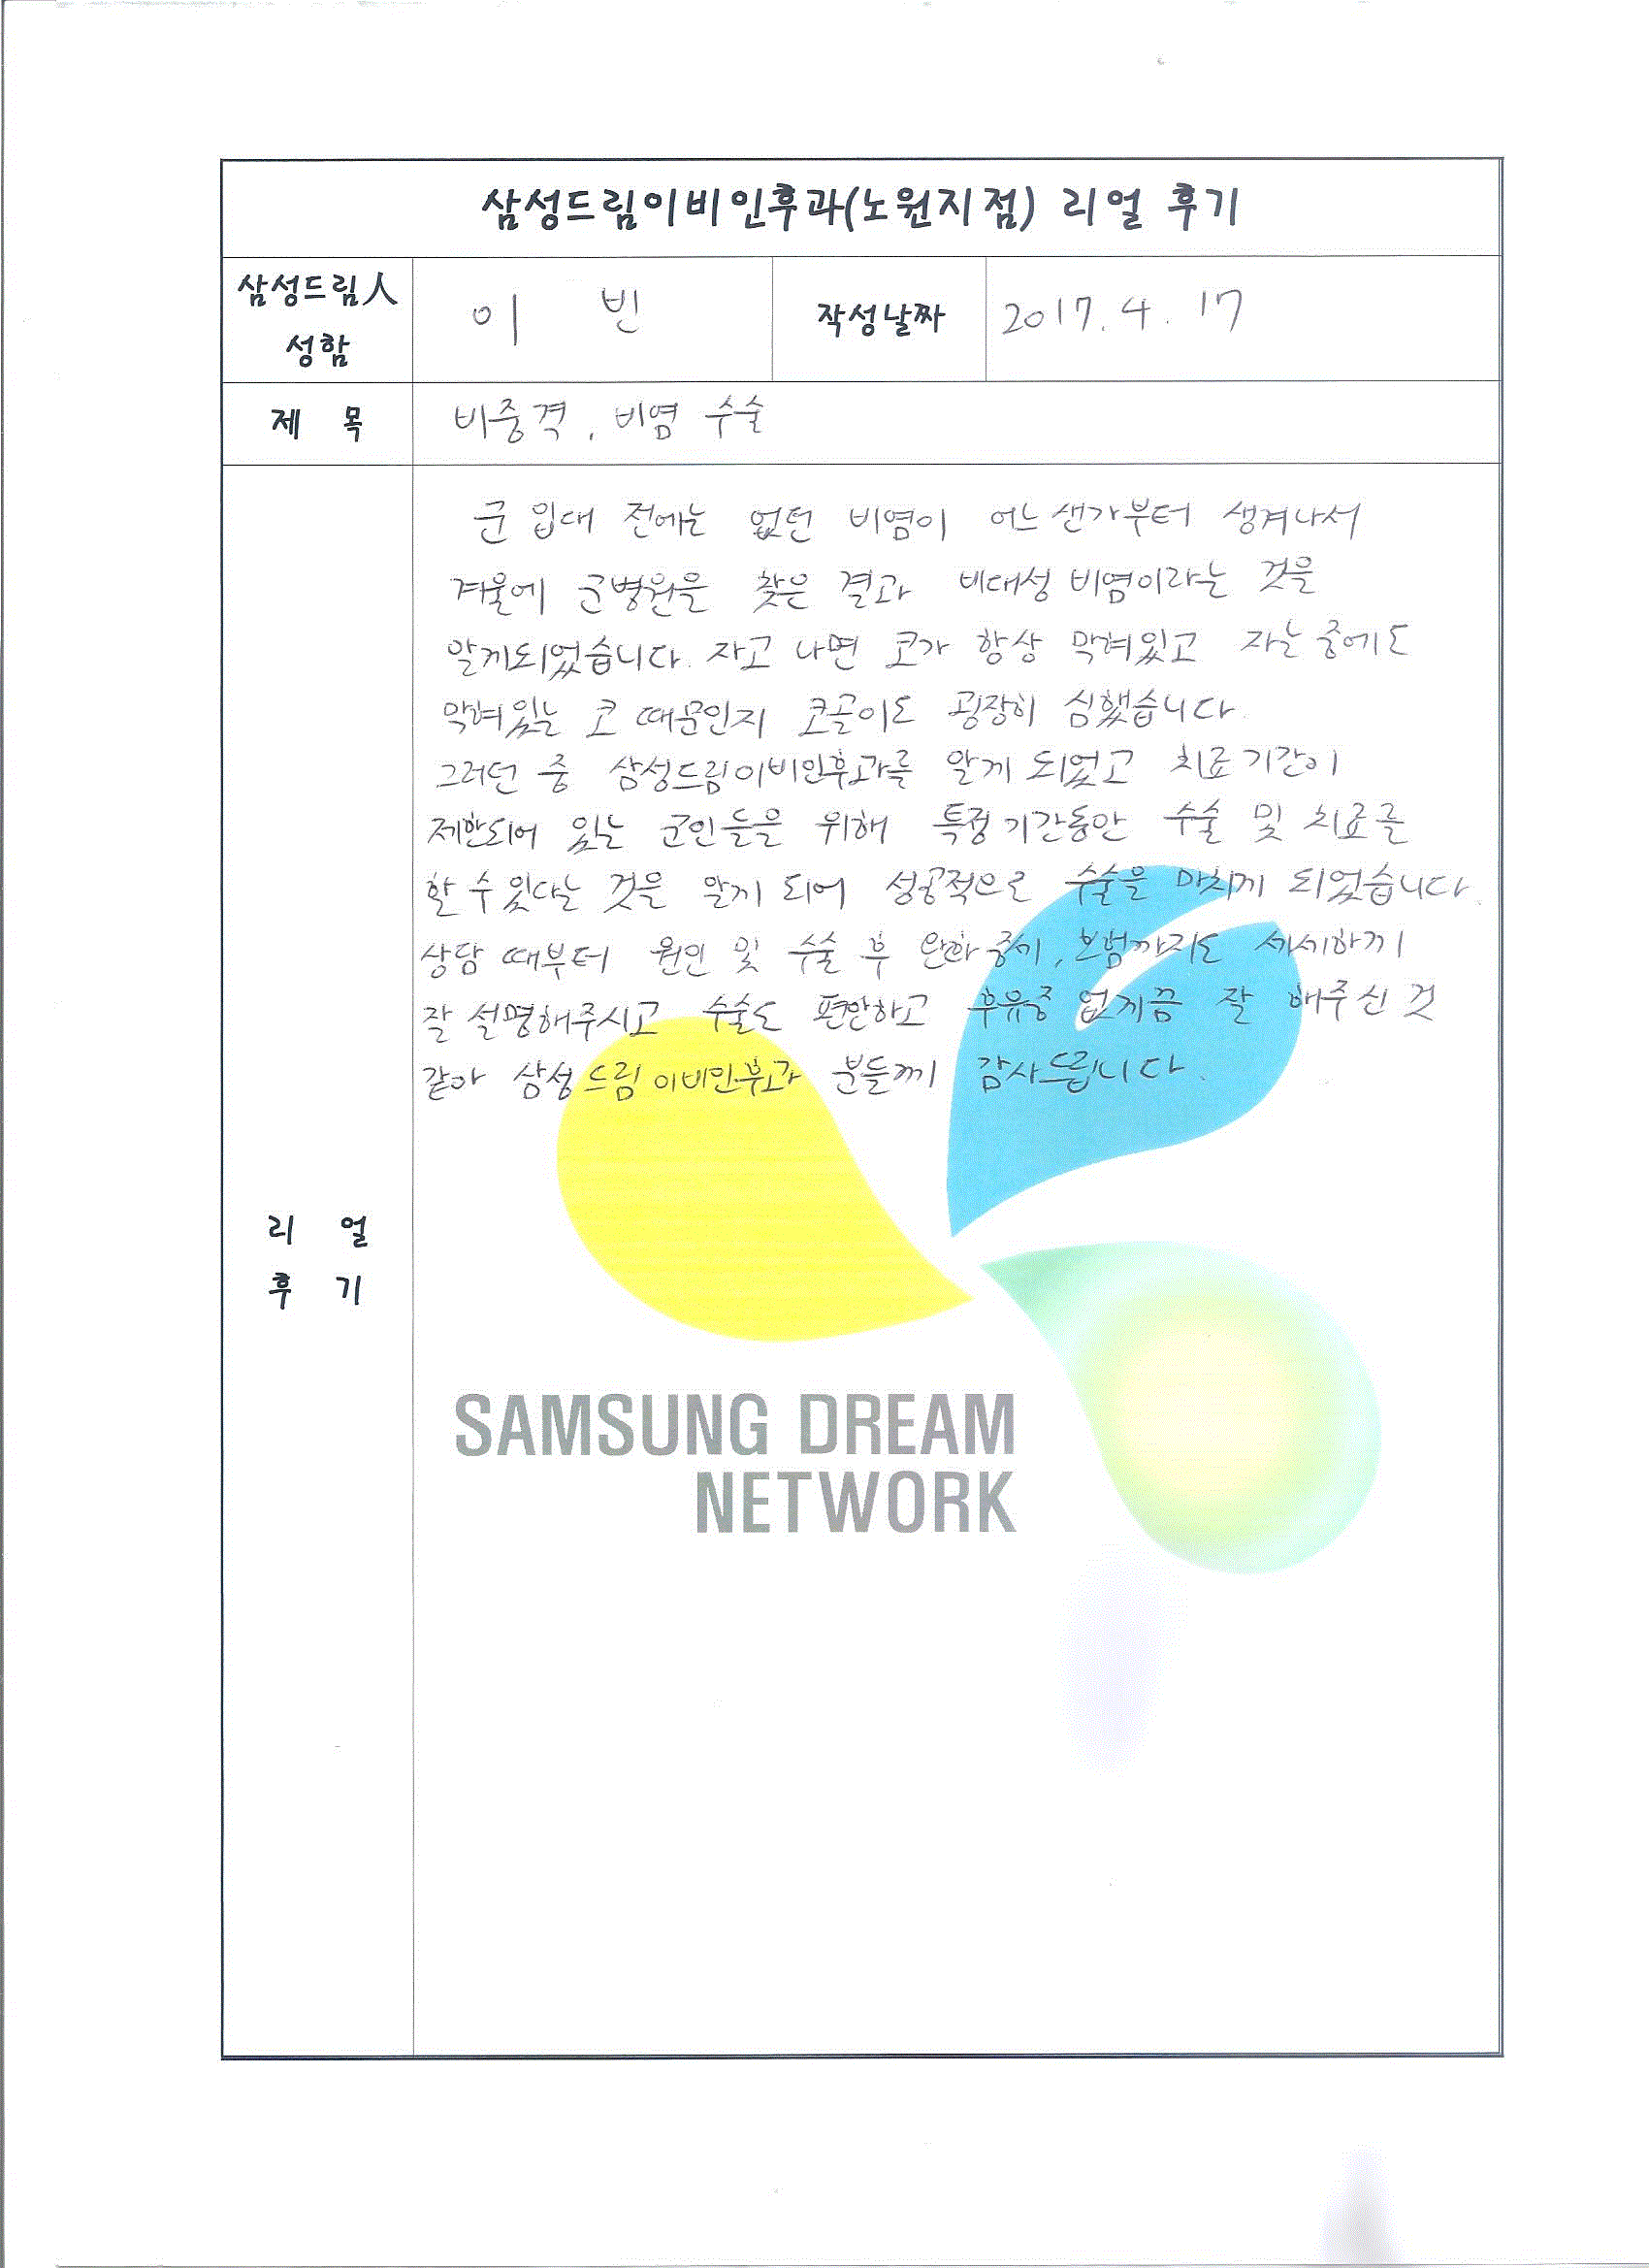 삼성드림이비인후과(노원지점) 리얼 후기
삼성드림人
성함
이 빈
작성날짜
2017. 4. 17
제 목
비중격, 비염 수술
군 입대 전에는 없던 비염이 어느샌가부터 생겨나서
겨울에 군병원을 찾은 결과 비대성 비염이라는 것을
알게되었습니다. 자고 나면 코가 항상 막혀있고 자는 중에도
막혀있는 코 때문인지 코골이도 굉장히 심했습니다.
그러던 중 삼성드림이비인후과를 알게 되었고 치료기간이
제한되어 있는 군인들을 위해 특정기간동안 수술 및 치료를
할 수 있다는 것을 알게 되어 성공적으로 수술을 마치게 되었습니다.
상담 때부터 원인 및 수술 후 완화 증세, 보험까지도 세세하게
잘 설명해주시고 수술도 편안하고 후유증 없게끔 잘 해주신 것
같아 삼성드림이비인후과 분들께 감사드립니다.
리 얼
후 기
SAMSUNG DREAM
NETWORK